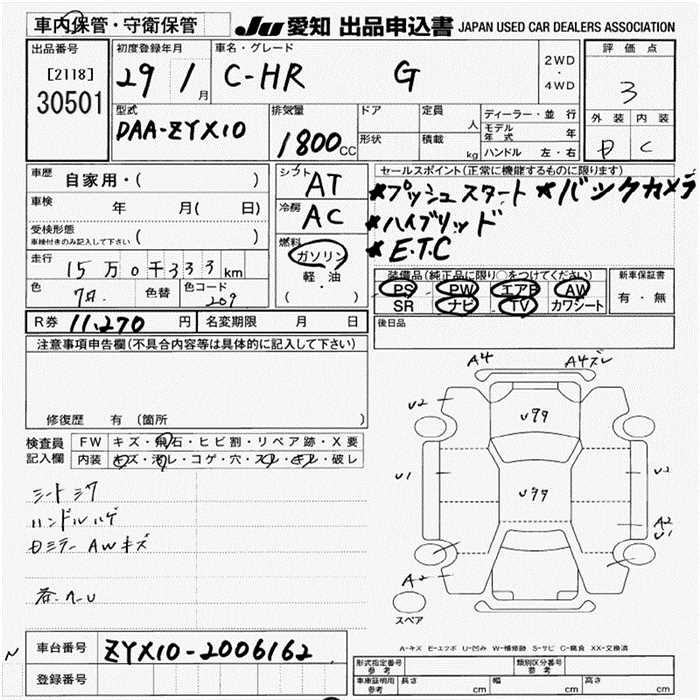 車内保管・守衛保管 JU 愛知 出品申込書 JAPAN USED CAR DEALERS ASSOCIATION
出品番号 [2118] 30501
初度登録年月 29 1月
車名・グレード C-HR G
2WD・4WD
評価点 3
外装 内装 C
型式 DAA-ZYX10
排気量 1800cc
ドア 形状
定員 人 積載 kg
ディーラー・並行
モデル年式 年
ハンドル 左・右
車歴 自家用・( )
車検 年 月(日)
受検形態 車検付きのみ記入して下さい ( )
走行 15万0千333km
色 色替 色コード 209
R券 11,270円 名変期限 月 日
シフト AT
冷房 AC
燃料 ガソリン 軽・油 ( )
セールスポイント(正常に機能するものに限ります)
★プッシュスタート ★バックカメラ
★ハイブリッド
★E.T.C
装備品(純正品に限り○をつけてください)
PS PW エアB AW
SR ナビ TV カワシート
新車保証書 有・無
後日品
注意事項申告欄(不具合内容等は具体的に記入して下さい)
修復歴 有 (箇所 )
検査員記入欄 FW キズ・飛石・ヒビ割・リペア跡・X要
内装 キズ・汚レ・コゲ・穴・スレ・キレ・破レ
シートシワ
ハンドルハゲ
ミラー AWキズ
A4 A4ズレ
U2 Uララ
U1 Uララ U2
A2 U1
A2
スペア
A-キズ E-エクボ U-凹み W-補修跡 S-サビ C-腐食 XX-交換済
車台番号 ZYX10-2006162
登録番号
形式指定番号 参考 類別区分番号 参考
車庫証明用 参考 長さ cm 幅 cm 高さ cm